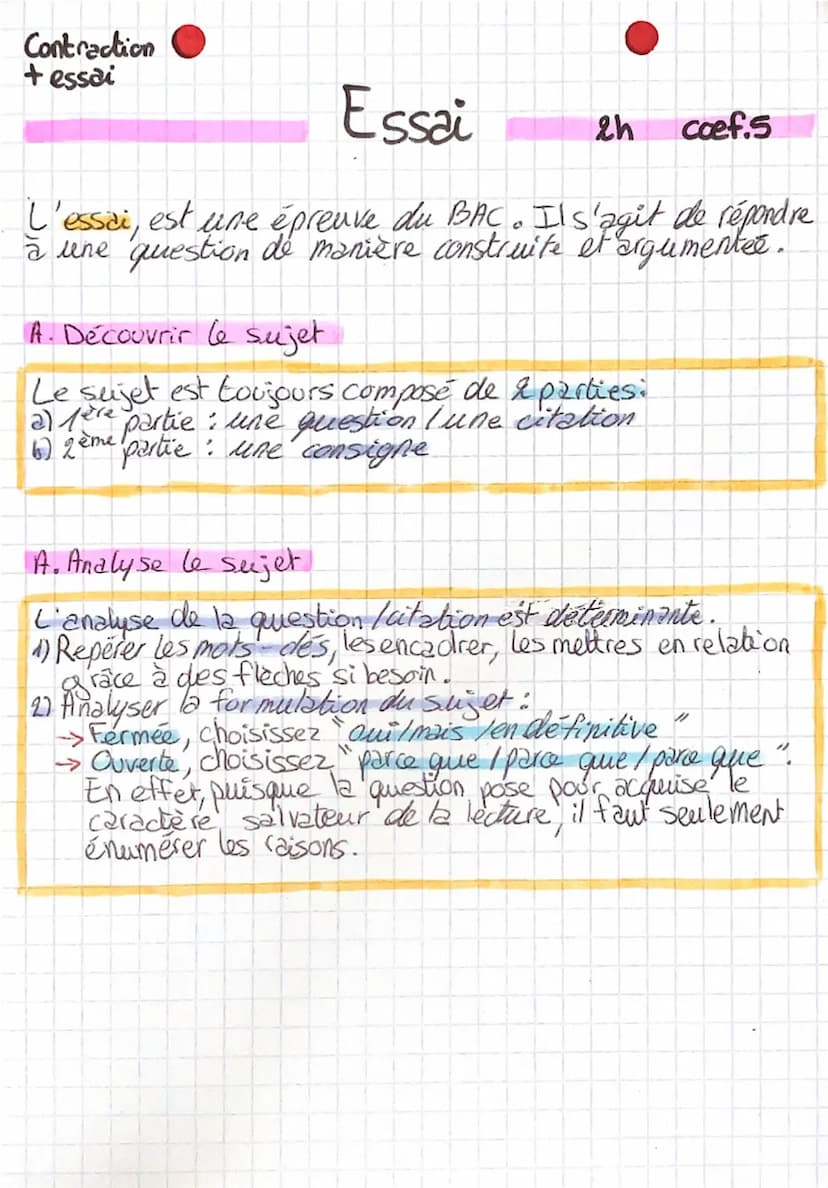 Contraction
+ essai
Essai
2h coef.5
L'essai, est une épreuve du BAC. Il s'agit de répondre
à une question de manière construite et argumenteé.
A. Découvrir le sujet
Le sujet est toujours composé de 2 parties:
a) 1ère partie : une question / une citation
b) 2ème partie : une consigne
A. Analyse le sujet
L'analyse de la question /citation est déterminante.
1) Repérer les mots-clés, les encadrer, les mettres en relation
grâce à des flèches si besoin.
2) Analyser la formulation du sujet :
→ Fermée, choisissez "oui/mais /en définitive"
→ Ouverte, choisissez "parce que / parce que / parce que".
En effet, puisque la question pose pour acquise le
caractère salvateur de la lecture, il faut seulement
énumérer les raisons.